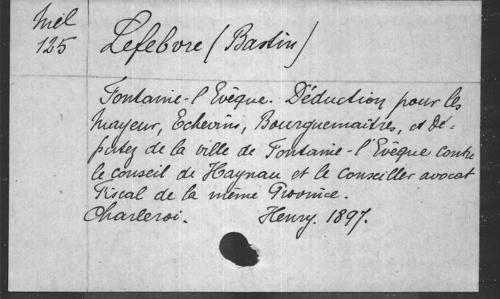 Mél
125
Lefebvre (Bastin)
Fontaine-l'Evêque. Déduction pour les
Mayeur, Echevins, Bourguemaitres, et dé-
putez de la ville de Fontaine-l'Evêque contre
le conseil de Haynau et le conseiller avocat
fiscal de la même Province.
Charleroi. Henry. 1897.